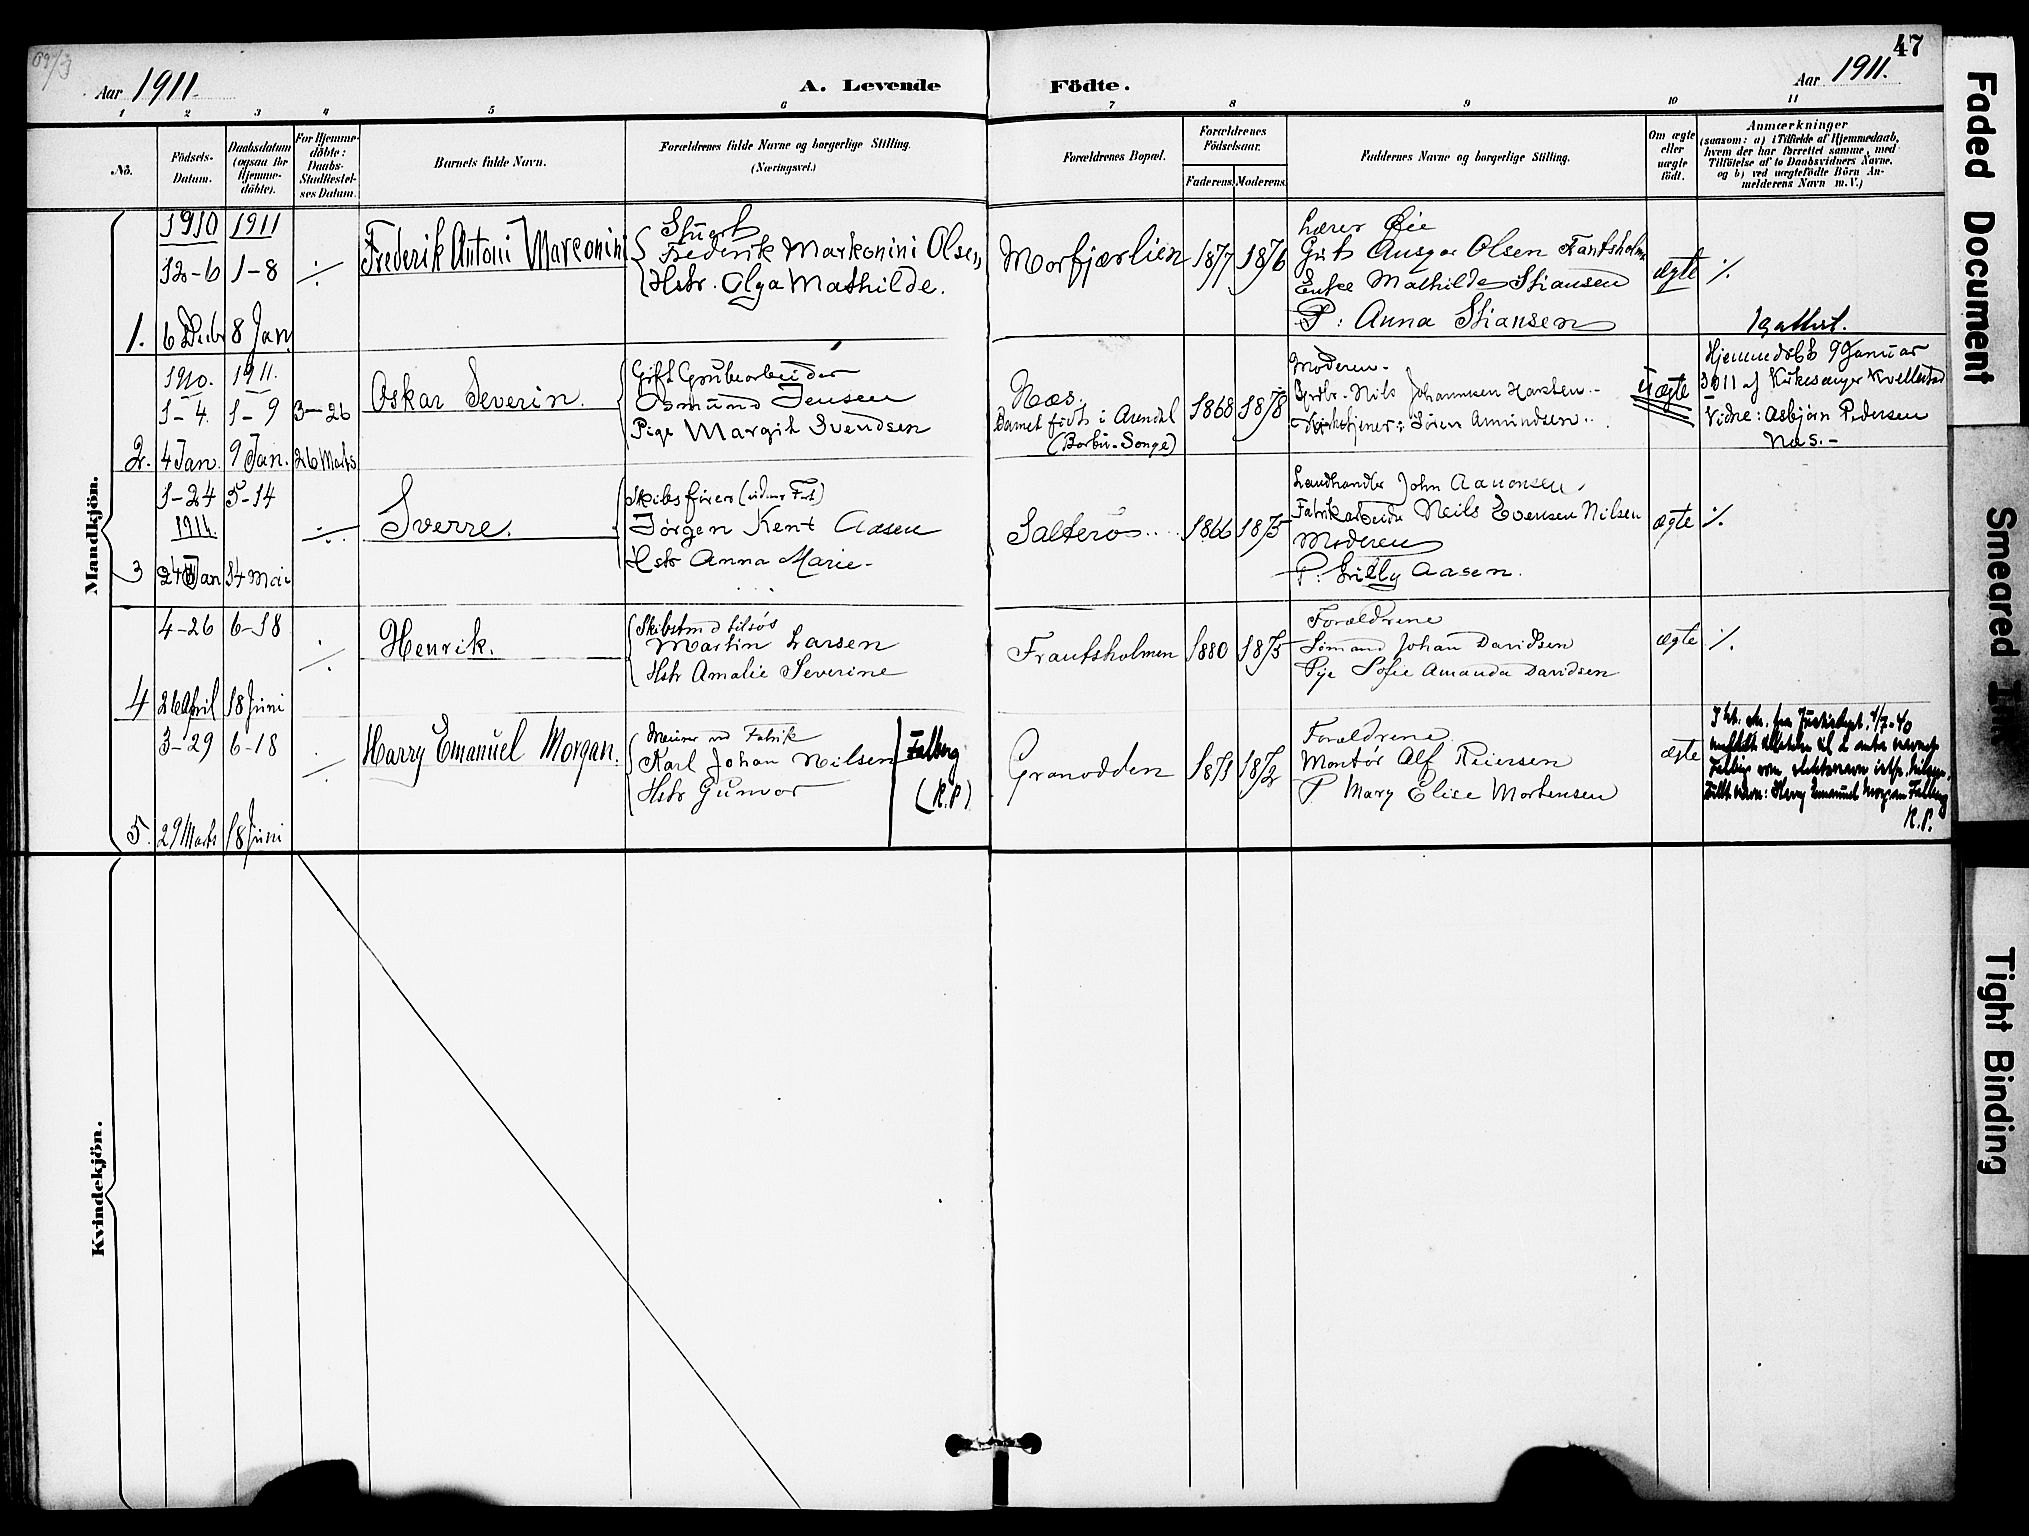 47
Aar 1911.
A. Levende Födte.
Aar 1911.
1 2 3 4 5 6 7 8 9 10 11
No.
Födsels-
Datum.
Daabsdatum
(ogsaa for
Hjemme-
döbte).
For Hjemme-
döbte:
Daabs-
Stadfæstel-
ses Datum.
Barnets fulde Navn.
Forældrenes fulde Navne og borgerlige Stilling.
(Næringsvei.)
Forældrenes Bopæl.
Forældrenes
Födselsaar.
Faderens. Moderens.
Faddernes Navne og borgerlige Stilling.
Om ægte
eller
uægte
födt.
Anmærkninger
(saasom: a) i Tilfælde af Hjemmedaab,
hvem der har forrettet samme, med
Tilföielse af to Daabsvidners Navne,
og b) ved uægtefödte Börn An-
melderens Navn m. V.)
Mandkjön.
1.
1910
12-6
6 Decbr
1911
1-8
8 Jan.
Frederik Antoni Marconini
Frederik Markonini Olsen
Hstr. Olga Mathilde.
Morfjærlien
1877 1876
Lærer Øie
Ansgar Olsen
Enke Mathilde Stiansen
P: Anna Stiansen
ægte
./.
2.
1910.
1-4.
4 Jan.
1911.
1-9
9 Jan.
3-26
26 Marts
Oskar Severin.
Gift Grubearbeider
Osmund Jensen
Pige Margit Svendsen
Næs.
Barnet født i Arendal
(Barbu-Songe)
1868 1878
Moderen.
Nils Johannesen
Søren Amundsen
uægte
Hjemmedøbt 9 Januar
1911 af Kirkesanger Kvellestad
Vidne: Asbjørn Pedersen
Næs.-
3
1-24
1911.
24 Jan
5-14
14 Mai
Sverre.
Skibsfører
Jørgen Kent Aasen
Hstr Anna Marie-
Salterø
1866 1875
Landhandler John Aanonsen
Fabrikarbeider Neils Evensen Nilsen
Moderen
P: Aasen.
ægte
./.
4
4-26
26 April
6-18
18 Juni
Henrik.
Martin Larsen
Hstr Amalie Severine
Frantsholmen
1880 1875
Forældrene
Sømand Johan Davidsen
Pige Sofie Amanda Davidsen
ægte
./.
5.
3-29
29 Marts
6-18
18 Juni
Harry Emanuel Morgan.
Murer ved Fabrik
Karl Johan Nilsen
Hstr Gunvor
Falberg
(R.P)
Granodden
1871 1872
Forældrene
Montør Alf Reiersen
P Mary Elise Mortensen
ægte
Fullt navn: Harry Emanuel Morgan Falberg
R.P.
Kvindekjön.
Faded Document
Smeared Ink
Tight Binding